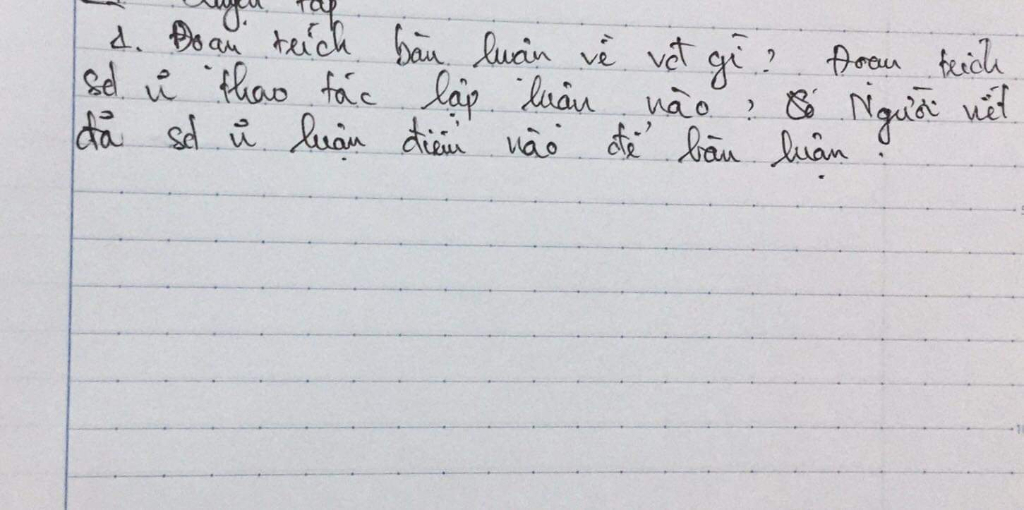 Luyện tập
1. Đoạn trích bàn luận về vđ gì? Đoạn trích
sd thao tác lập luận nào? Người viết
đã sd luận điểm nào để bàn luận?